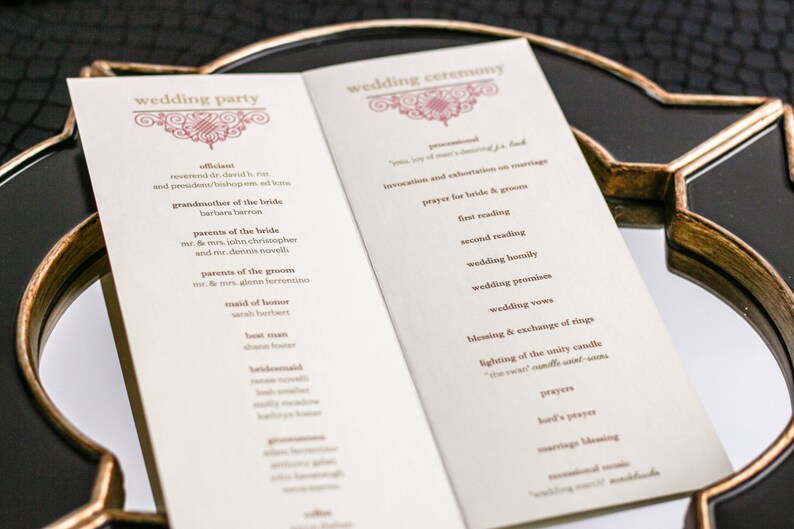 wedding party
officiant
reverend dr. david h. ritt
and president/bishop em. ed lcms
grandmother of the bride
barbara barron
parents of the bride
mr. & mrs. john christopher
and mr. dennis novelli
parents of the groom
mr. & mrs. glenn ferrentino
maid of honor
sarah herbert
best man
shane foster
bridesmaid
renee novelli
leah smaller
molly meadow
kathryn foster
groomsmen
adam ferrentino
anthony galati
john kavanaugh
wedding ceremony
processional
"jesu, joy of man's desiring" j.s. bach
invocation and exhortation on marriage
prayer for bride & groom
first reading
second reading
wedding homily
wedding promises
wedding vows
blessing & exchange of rings
lighting of the unity candle
"the swan" camille saint-saens
prayers
lord's prayer
marriage blessing
recessional music
"wedding march" mendelssohn